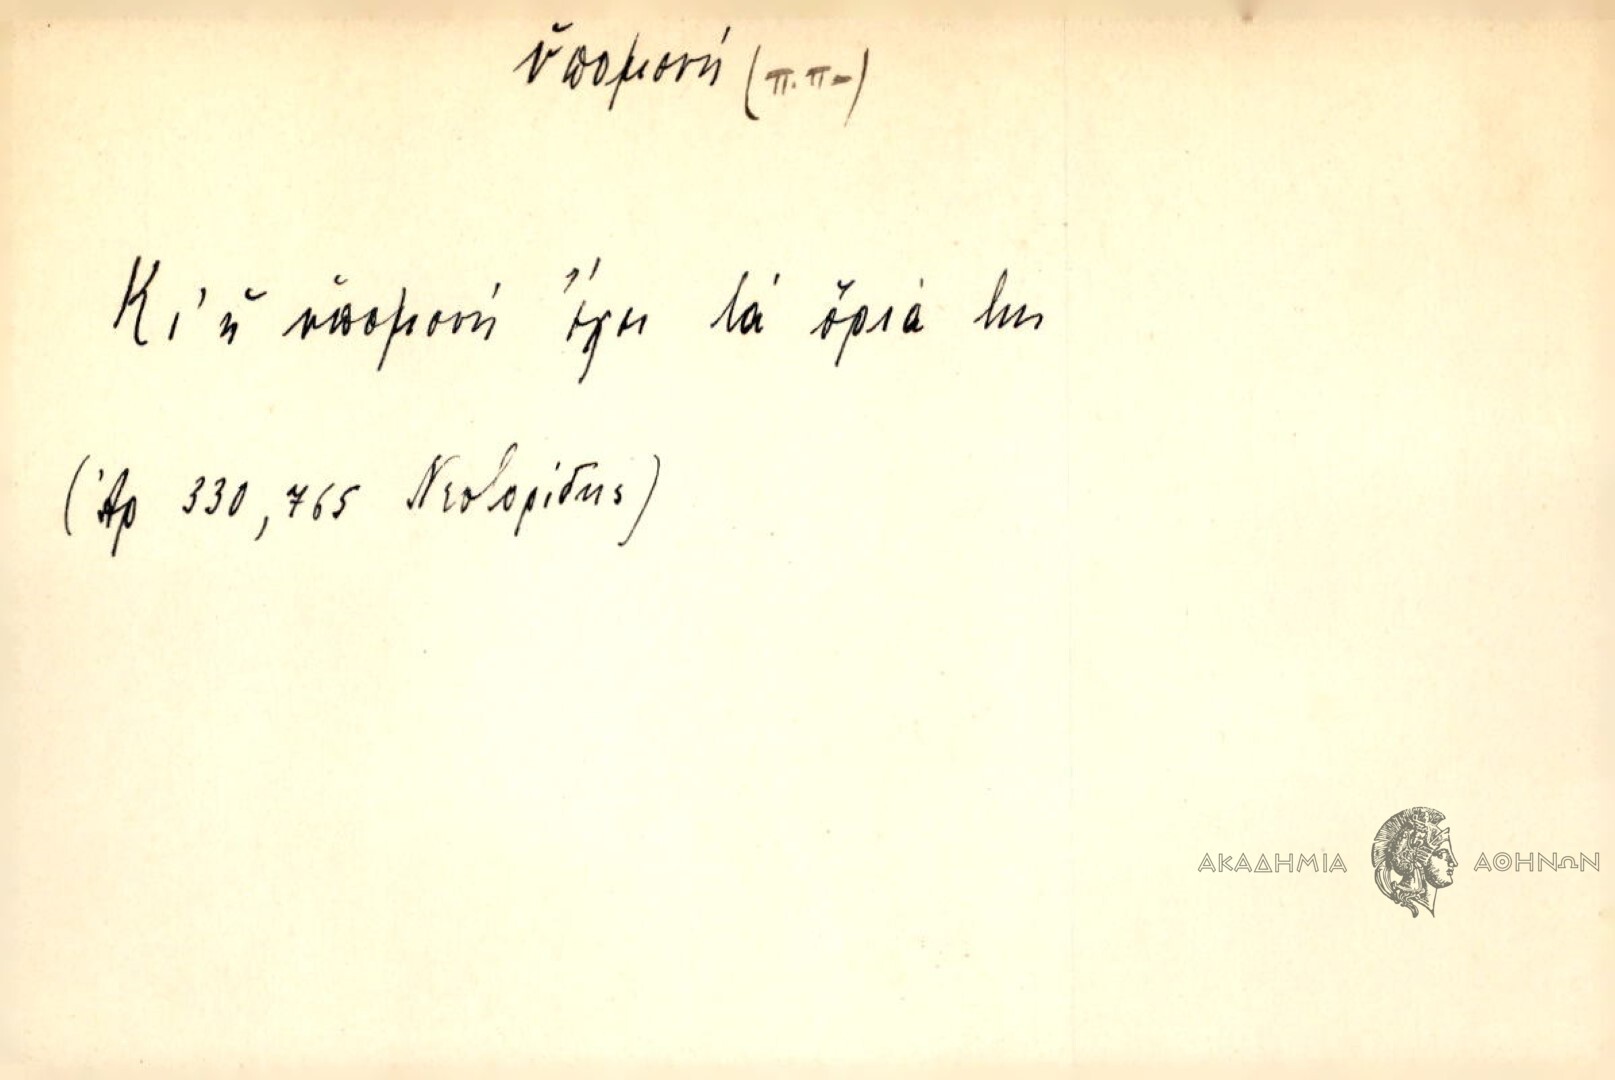 ὑπομονή (π.π-)
Κι' ἡ ὑπομονή ἔχει τά ὅριά της
(Ἀρ 330, 765 Νεστορίδης)
ΑΚΑΔΗΜΙΑ ΑΘΗΝΩΝ